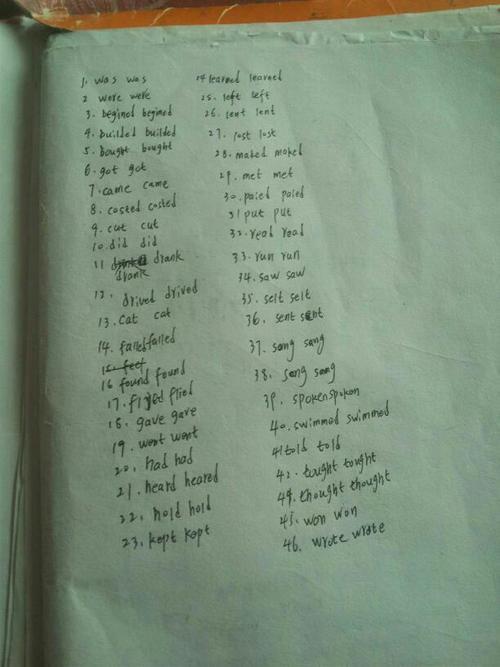 1. was was
2 were were
3. begined begined
4. builded builded
5. bought bought
6. got got
7. came came
8. costed costed
9. cut cut
10. did did
11 drank
drank
12. drived drived
13. cat cat
14. failed failed
15. feet
16 found found
17. flied flied
18. gave gave
19. went went
20. had had
21. heard heared
22. hold hold
23. kept kept
24 learned learned
25. left left
26. lent lent
27. lost lost
28. maked maked
29. met met
30. paied paied
31 put put
32. read read
33. run run
34. saw saw
35. selt selt
36. sent sent
37. sang sang
38. song song
39. spoken spoken
40. swimmed swimmed
41 told told
42. tought tought
44. thought thought
45. won won
46. wrote wrote